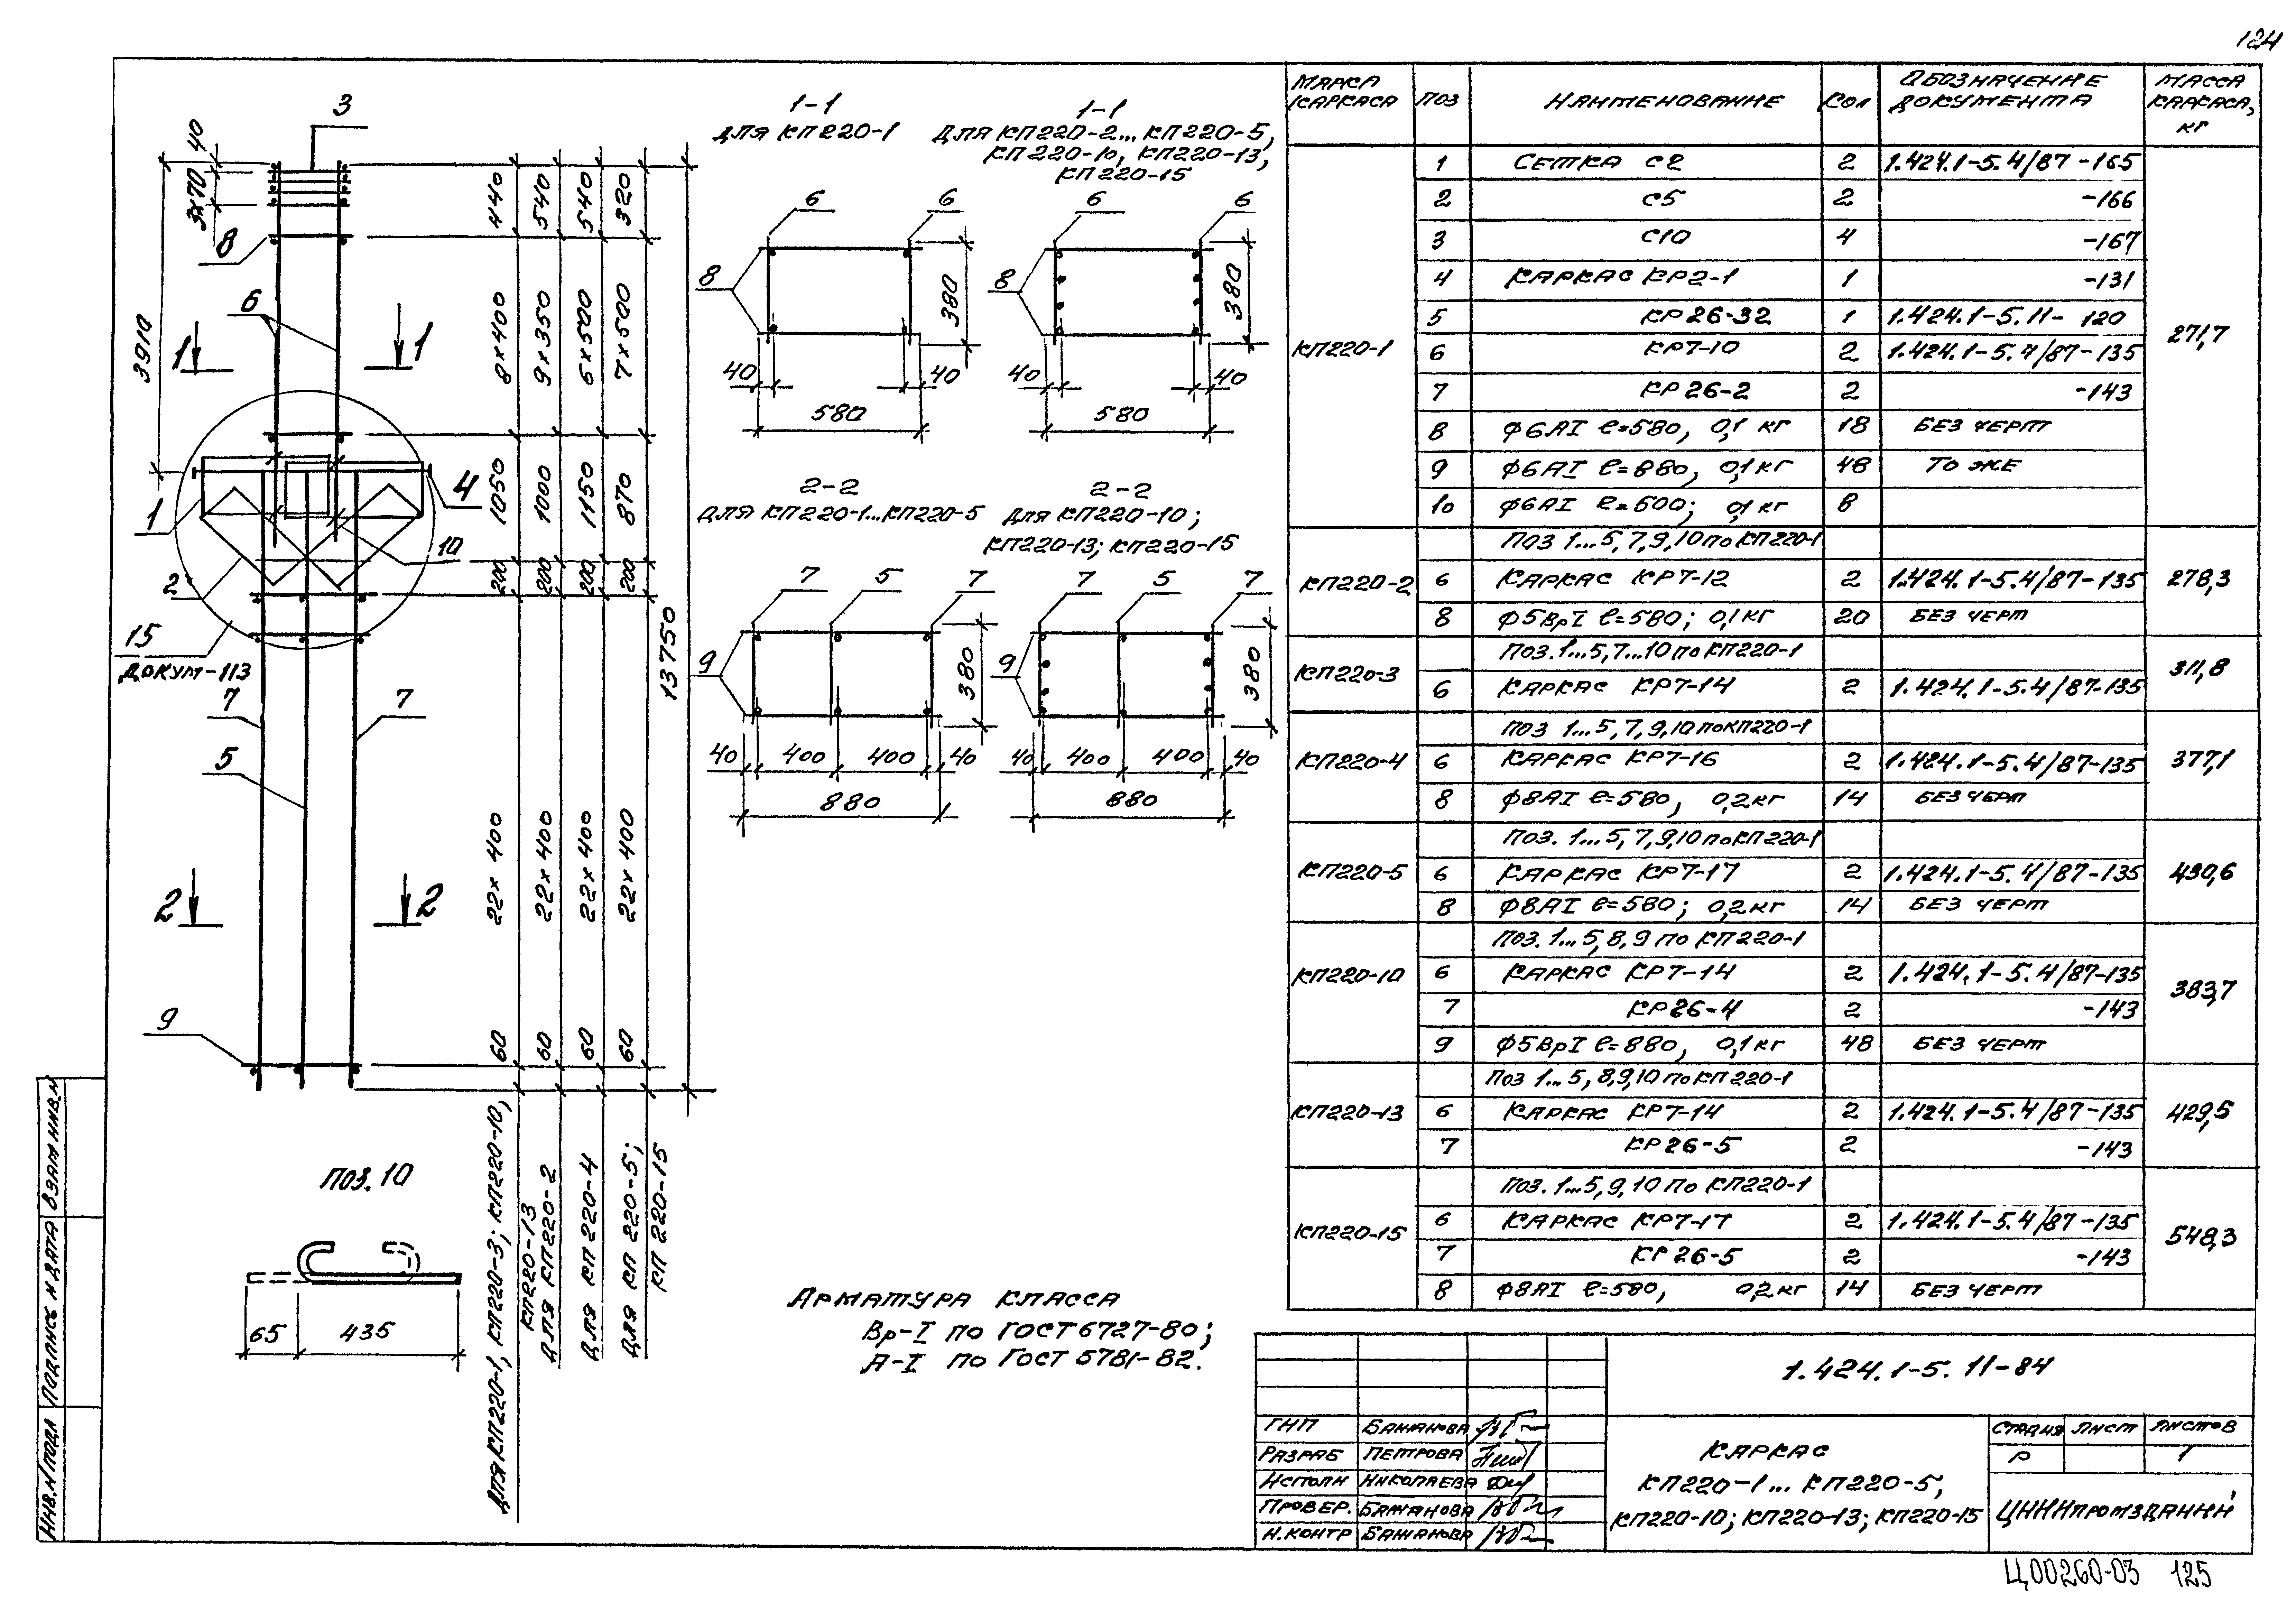 124
3
40
3×70
8
3910
6
1
1
1
4
10
2
15
ДОКУМ-113
7
7
5
2
2
9
440
540
540
320
8×400
9×350
6×500
7×500
1050
1000
1150
870
200
200
200
200
22×400
22×400
22×400
22×400
60
60
60
60
13750
ДЛЯ КП220-1, КП220-3; КП220-10,
КП220-13
ДЛЯ КП220-2
ДЛЯ КП 220-4
ДЛЯ КП 220-5;
КП 220-15
ПОЗ. 10
65
435
1-1
ДЛЯ КП220-1
6
6
8
380
40
40
580
1-1
ДЛЯ КП220-2... КП220-5,
КП220-10, КП220-13,
КП220-15
6
6
8
380
40
40
580
2-2
ДЛЯ КП220-1...КП220-5
7
5
7
9
380
40
400
400
40
880
2-2
ДЛЯ КП220-10;
КП220-13; КП220-15
7
5
7
9
380
40
400
400
40
880
АРМАТУРА КЛАССА
Вр-I ПО ГОСТ 6727-80;
А-I ПО ГОСТ 5781-82.
МАРКА КАРКАСА ПОЗ НАИМЕНОВАНИЕ КОЛ ОБОЗНАЧЕНИЕ ДОКУМЕНТА МАССА КАРКАСА, КГ
КП220-1 271,7
1 СЕТКА С2 2 1.424.1-5.4/87-165
2 С5 2 -166
3 С10 4 -167
4 КАРКАС КР2-1 1 -131
5 КР26-32 1 1.424.1-5.11- 120
6 КР7-10 2 1.424.1-5.4/87-135
7 КР26-2 2 -143
8 Ф6АI ℓ=580, 0,1 КГ 18 БЕЗ ЧЕРТ
9 Ф6АI ℓ=880, 0,1 КГ 48 ТО ЖЕ
10 Ф6АI ℓ=600; 0,1 КГ 8
КП220-2 278,3
ПОЗ 1...5,7,9,10 ПО КП220-1
6 КАРКАС КР7-12 2 1.424.1-5.4/87-135
8 Ф5ВрI ℓ=580; 0,1 КГ 20 БЕЗ ЧЕРТ
КП220-3 311,8
ПОЗ. 1...5,7...10 ПО КП220-1
6 КАРКАС КР7-14 2 1.424.1-5.4/87-135
КП220-4 377,1
ПОЗ 1...5,7,9,10 ПО КП220-1
6 КАРКАС КР7-16 2 1.424.1-5.4/87-135
8 Ф8АI ℓ=580, 0,2 КГ 14 БЕЗ ЧЕРТ
КП220-5 430,6
ПОЗ. 1...5,7,9,10 ПО КП220-1
6 КАРКАС КР7-17 2 1.424.1-5.4/87-135
8 Ф8АI ℓ=580; 0,2 КГ 14 БЕЗ ЧЕРТ
КП220-10 383,7
ПОЗ. 1...5,8,9 ПО КП220-1
6 КАРКАС КР7-14 2 1.424.1-5.4/87-135
7 КР26-4 2 -143
9 Ф5ВрI ℓ=880, 0,1 КГ 48 БЕЗ ЧЕРТ
КП220-13 429,5
ПОЗ 1...5,8,9,10 ПО КП220-1
6 КАРКАС КР7-14 2 1.424.1-5.4/87-135
7 КР26-5 2 -143
КП220-15 548,3
ПОЗ. 1...5,9,10 ПО КП220-1
6 КАРКАС КР7-17 2 1.424.1-5.4/87-135
7 КР26-5 2 -143
8 Ф8АI ℓ=580, 0,2 КГ 14 БЕЗ ЧЕРТ
1.424.1-5.11-84
ГИП БАЖАНОВА
РАЗРАБ ПЕТРОВА
ИСПОЛН НИКОЛАЕВА
ПРОВЕР. БАЖАНОВА
Н.КОНТР БАЖАНОВА
КАРКАС
КП220-1... КП220-5,
КП220-10; КП220-13; КП220-15
СТАДИЯ ЛИСТ ЛИСТОВ
Р 1
ЦНИИПРОМЗДАНИЙ
ИНВ.N ПОДЛ ПОДПИСЬ И ДАТА ВЗАМ ИНВ.N
Ц00260-03 125